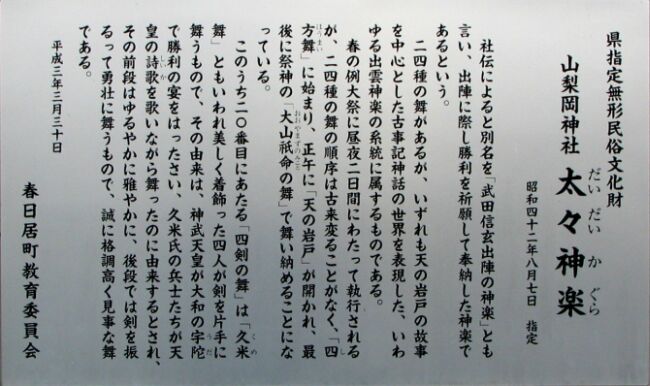 県指定無形民俗文化財
山梨岡神社 太々神楽
だいだいかぐら
昭和四十二年八月七日 指定
社伝によると別名を「武田信玄出陣の神楽」とも
言い、出陣に際し勝利を祈願して奉納した神楽で
あるという。
二四種の舞があるが、いずれも天の岩戸の故事
を中心とした古事記神話の世界を表現した、いわ
ゆる出雲神楽の系統に属するものである。
春の例大祭に昼夜二日間にわたって執行される
が、二四種の舞の順序は古来変ることがなく、「四
方舞」に始まり、正午に「天の岩戸」が開かれ、最
しほうまい
後に祭神の「大山祇命の舞」で舞い納めることにな
おおやまずみのみこと
っている。
このうち二〇番目にあたる「四剣の舞」は「久米
くめ
舞」ともいわれ美しく着飾った四人が剣を片手に
舞うもので、その由来は、神武天皇が大和の宇陀
うだ
で勝利の宴をはったさい、久米氏の兵士たちが天
皇の詩歌を歌いながら舞ったのに由来するとされ、
しいか
その前段はゆるやかに雅やかに、後段では剣を振
るって勇壮に舞うもので、誠に格調高く見事な舞
である。
平成三年三月三十日
春日居町教育委員会